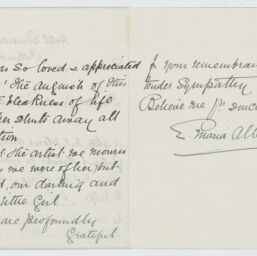 as so loved & appreciated
! The anguish of this
bleakness of life
her shuts away all
tion
the artist we mourn
we were of her, but
d, our darling and
little Girl.
are profoundly
Grateful
for your remembran
tender Sympathy
Believe me yrs sincer
E. Maria Al